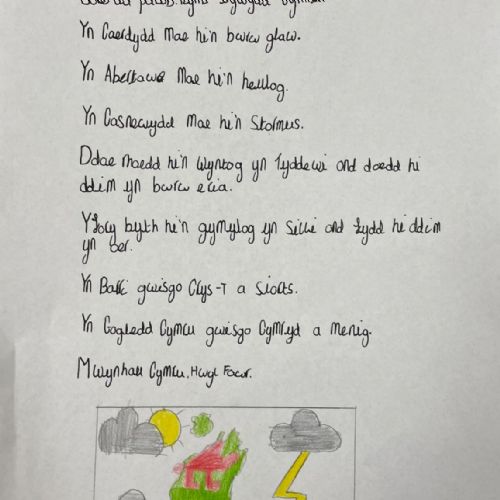 Yn Caerdydd Mae hi'n bwrw glaw.
Yn Abertawe Mae hi'n heulog.
Yn Casnewydd Mae hi'n Stormus.
hi'n Wyntog yn Tyddewi ond doedd hi
ddim yn bwrw eria.
byth hi'n gymylog yn Sili ond fydd hi ddim
yn oer.
Yn gwisgo Crys-T a Siorts.
Yn Gogledd Cymru gwisgo a Menig.
Mwynhau Cymru, Hwyl Fawr.